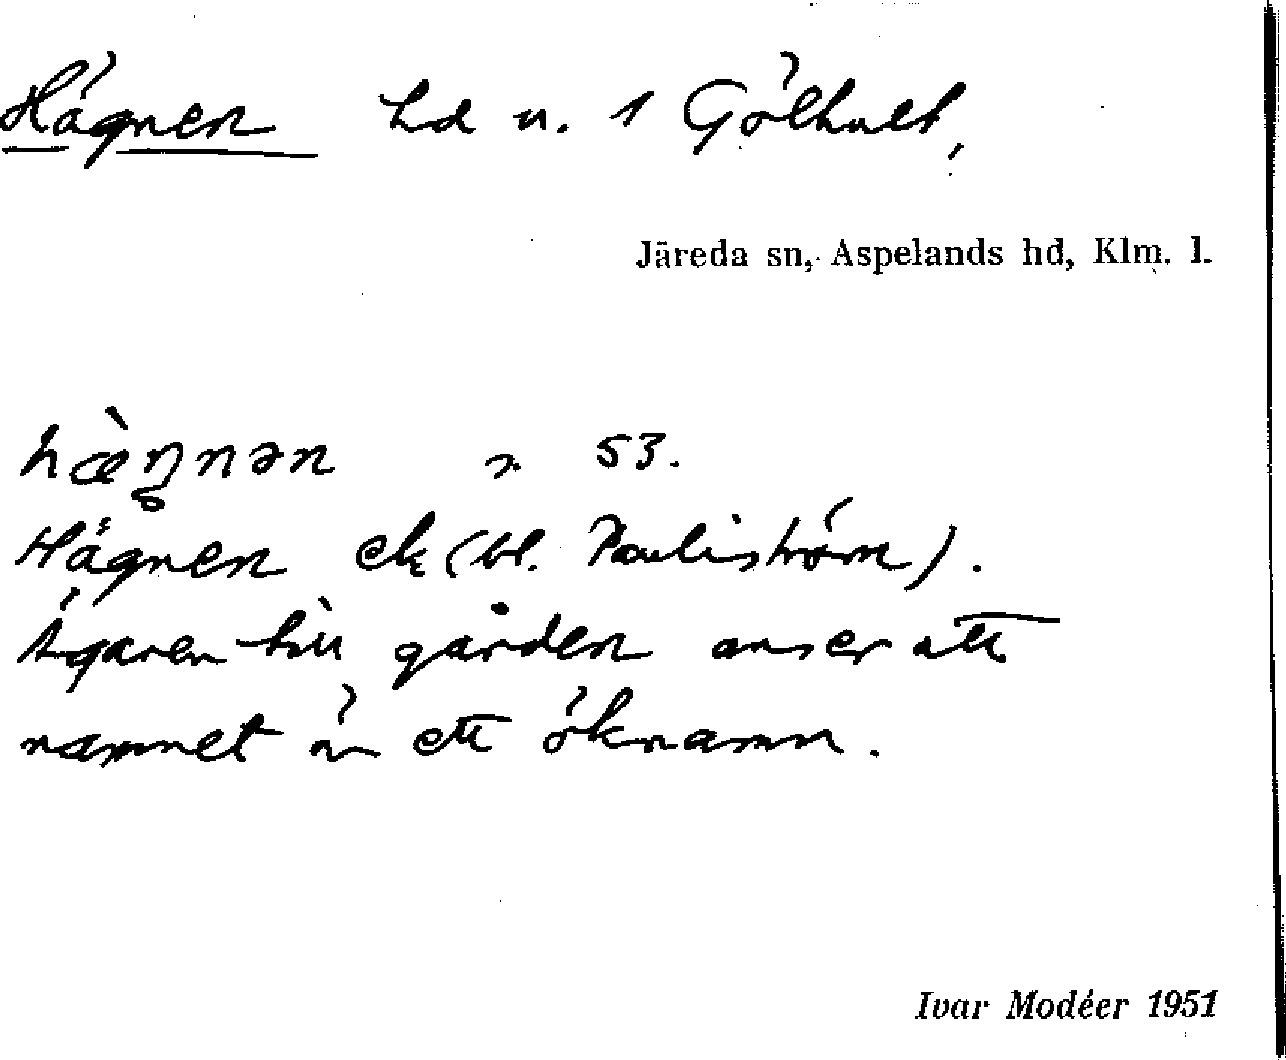 Hägnen hd u. 1 Gölhult,
Järeda sn, Aspelands hd, Klm. l.
hæ̀ŋnən 53.
Hägnen ek (bl. Pauliström).
Ägaren till gården anser att
namnet är ett öknamn.
Ivar Modéer 1951